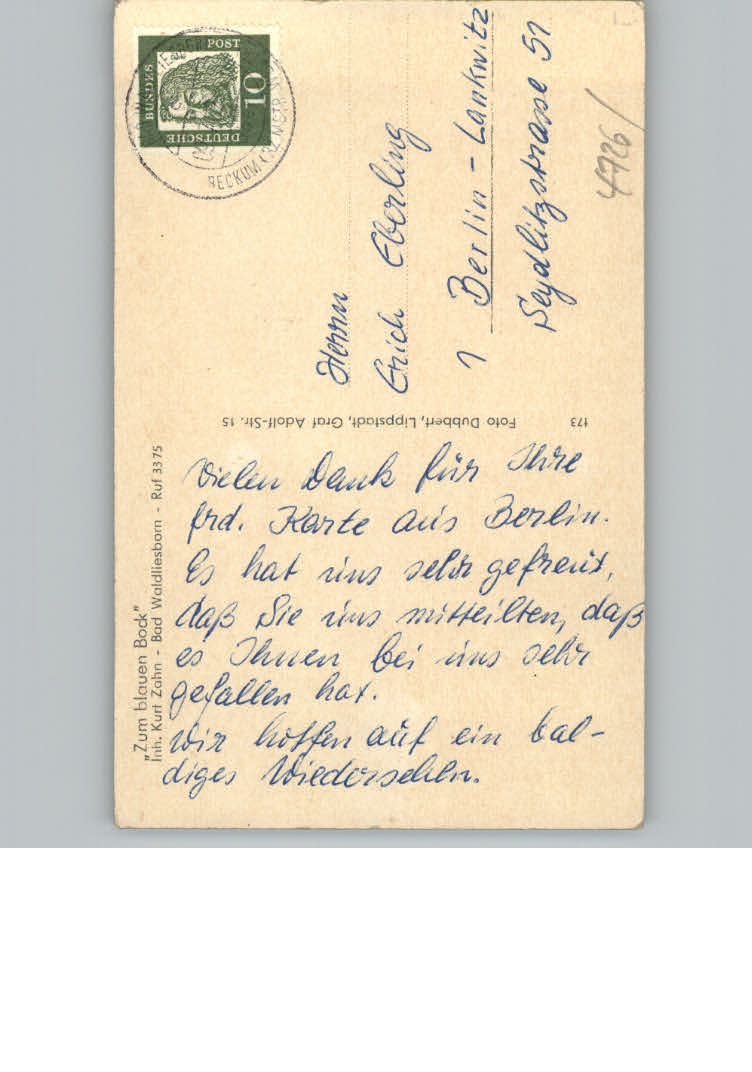 „Zum blauen Bock"
Inh. Kurt Zahn - Bad Waldliesborn - Ruf 33 75
Vielen Dank für Ihre
frd. Karte aus Berlin.
Es hat uns sehr gefreut,
daß Sie uns mitteilten, daß
es Ihnen bei uns sehr
gefallen hat.
Wir hoffen auf ein bal-
diges Wiedersehen.
173
Foto Dubbert, Lippstadt, Graf Adolf-Str. 15
Herrn
Erich Eberling
1 Berlin - Lankwitz
Seydlitzstrasse 51
4726/
DEUTSCHE
BUNDES
POST
10
BECKUM